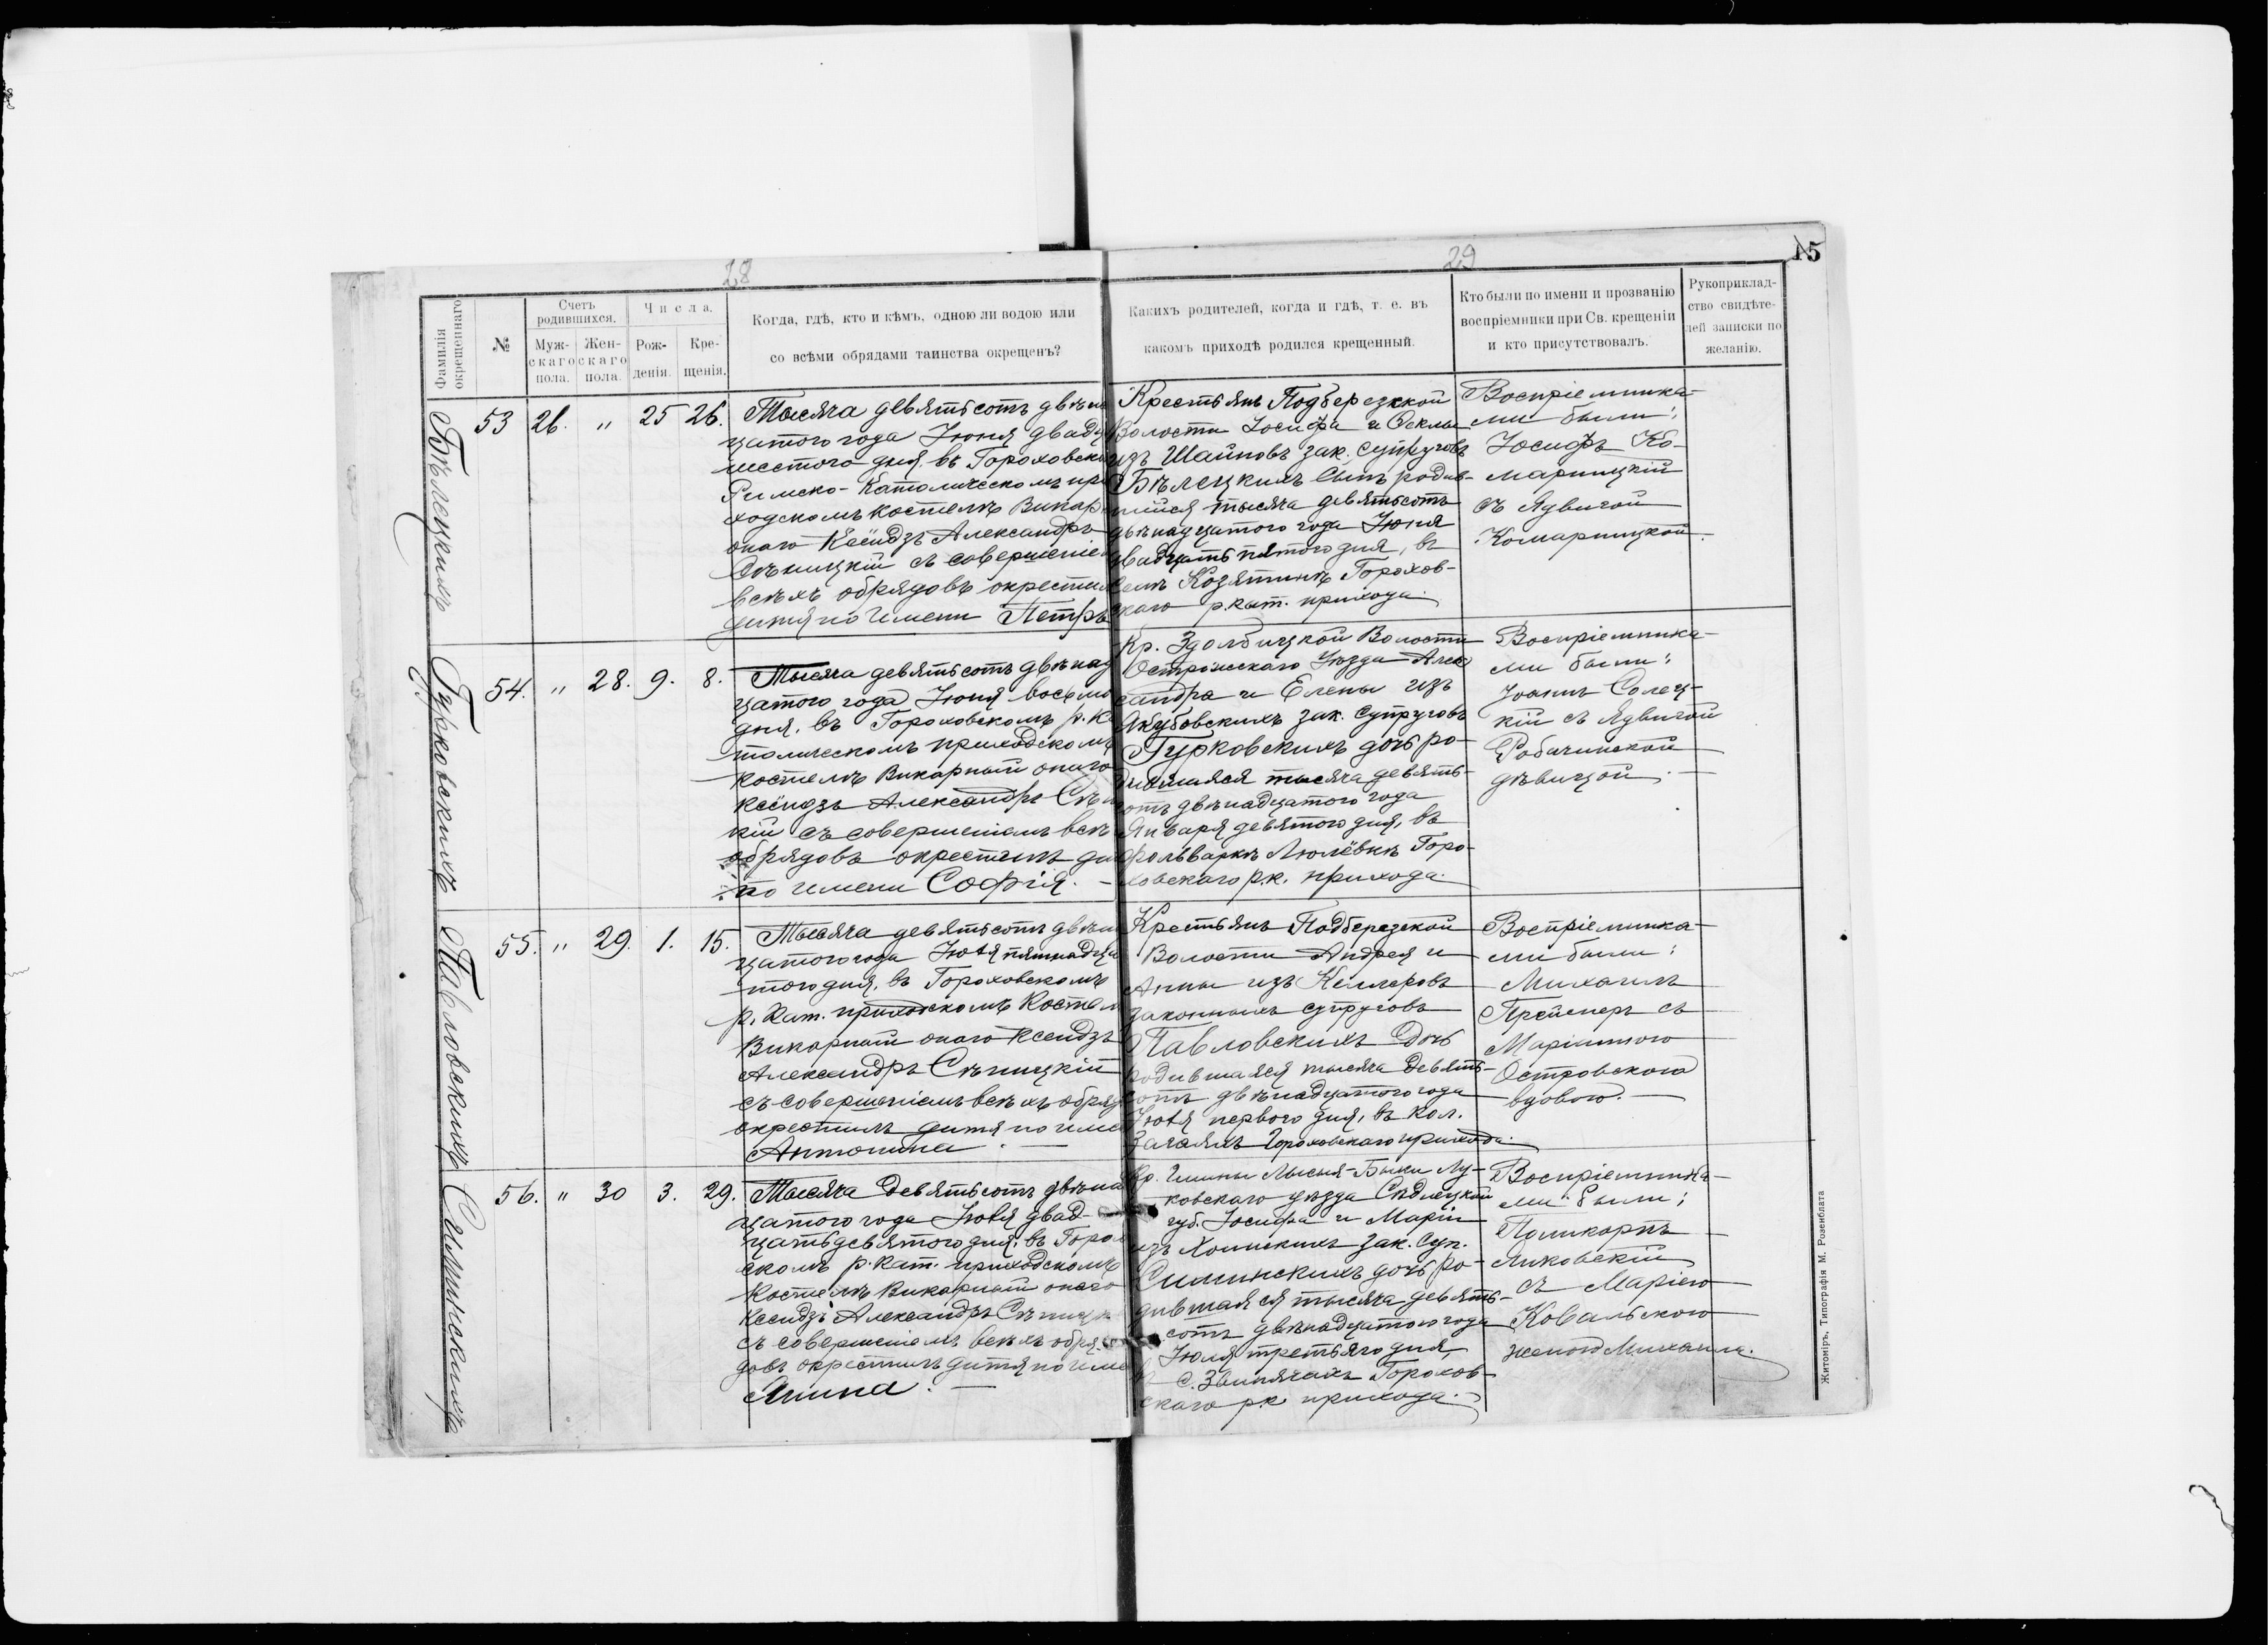 28
29
15
Фамилія окрещеннаго
№
Счетъ родившихся.
Мужскаго пола.
Женскаго пола.
Числа.
Рожденія.
Крещенія.
Когда, гдѣ, кто и кѣмъ, одною ли водою или
со всѣми обрядами таинства окрещенъ?
Какихъ родителей, когда и гдѣ, т. е. въ
какомъ приходѣ родился крещенный.
Кто были по имени и прозванію
воспріемники при Св. крещеніи
и кто присутствовалъ.
Рукоприклад-
ство свидѣте-
лей записки по
желанію.
Бѣлецкихъ
53 26. " 25 26.
Тысяча девятьсотъ двѣна
цатого года Іюня двадц
шестого дня, въ Гороховск
Римско-Католическомъ при
ходскомъ костелѣ Викар
онаго Ксёндзъ Александръ
Сѣницкій съ совершеніем
всѣхъ обрядовъ окрестил
дитя по имени Петръ
Крестьянъ Подберезкой
Волости Іосифа и Феклы
изъ Шайновъ зак. супруговъ
Бѣлецкихъ сынъ родив-
шійся тысяча девятьсотъ
двѣнадцатого года Іюня
двадцать пятого дня, въ
селѣ Козятинѣ Горохов-
скаго р.кат. прихода.
Воспріемника-
ми были:
Іосифъ Ко-
марницкій
съ Ядвигой
Комарницкой.
Гурковскихъ
54. " 28. 9. 8.
Тысяча девятьсотъ двѣнад
цатого года Іюня восьмо
дня, въ Гороховскомъ р. К
толическомъ приходскомъ
костелѣ Викарный онаго
Ксёндзъ Александръ Сѣн
кій съ совершеніемъ всѣ
обрядовъ окрестилъ ди
по имени Софія. —
Кр. Здолбицкой Волости
Острожскаго Уѣзда Алек
сандра и Елены изъ
Якубовскихъ зак. супруговъ
Гурковскихъ дочь ро-
дившаяся тысяча девять-
сотъ двѣнадцатого года
Января девятого дня, въ
фольваркѣ Люлёвкѣ Горо-
ховскаго р.к. прихода.
Воспріемника-
ми были:
Іоаннъ Солец-
кій съ Ядвигой
дѣвицой. —
Павловскихъ
55. " 29. 1. 15.
Тысяча девятьсотъ двѣн
цатого года Іюля пятнадца
того дня, въ Гороховскомъ
р. Кат. приходскомъ Костел
Викарный онаго Ксендзъ
Александръ Сѣницкій
съ совершеніемъ всѣхъ обряд
окрестилъ дитя по име
Антонина. —
Крестьянъ Подберезской
Волости Андрея и
Анны изъ Келлеровъ
законныхъ супруговъ
Павловскихъ Дочь
родившаяся тысяча девять-
сотъ двѣнадцатого года
Іюля первого дня, въ кол.
Гороховскаго прихода.
Воспріемника-
ми были:
Михаилъ
Прейснеръ съ
Маріанною
Островскою
вдовою. —
Симинскихъ
56. " 30 3. 29.
Тысяча девятьсотъ двѣна
цатого года Іюля двад-
цать девятого дня, въ Горох
скомъ р. кат. приходскомъ
Костелѣ Викарный онаго
Ксендзъ Александръ Сѣницк
съ совершеніемъ всѣхъ обря-
довъ окрестилъ дитя по име
Янина. —
Кр. Гмины Лысыя-Быки Лу-
ковскаго уѣзда Сѣдлецкой
губ. Іосифа и Маріи
изъ Хоинскихъ зак. суп.
Симинскихъ дочь ро-
дившаяся тысяча девять-
сотъ двѣнадцатого года
Іюля третьяго дня,
въ с. Звинячахъ Горохов-
скаго р.к. прихода.
Воспріемника-
ми были:
Поликарпъ
Янковскій
съ Маріею
Ковальскою
женою Михаила.
Житоміръ, Типографія М. Розенблата